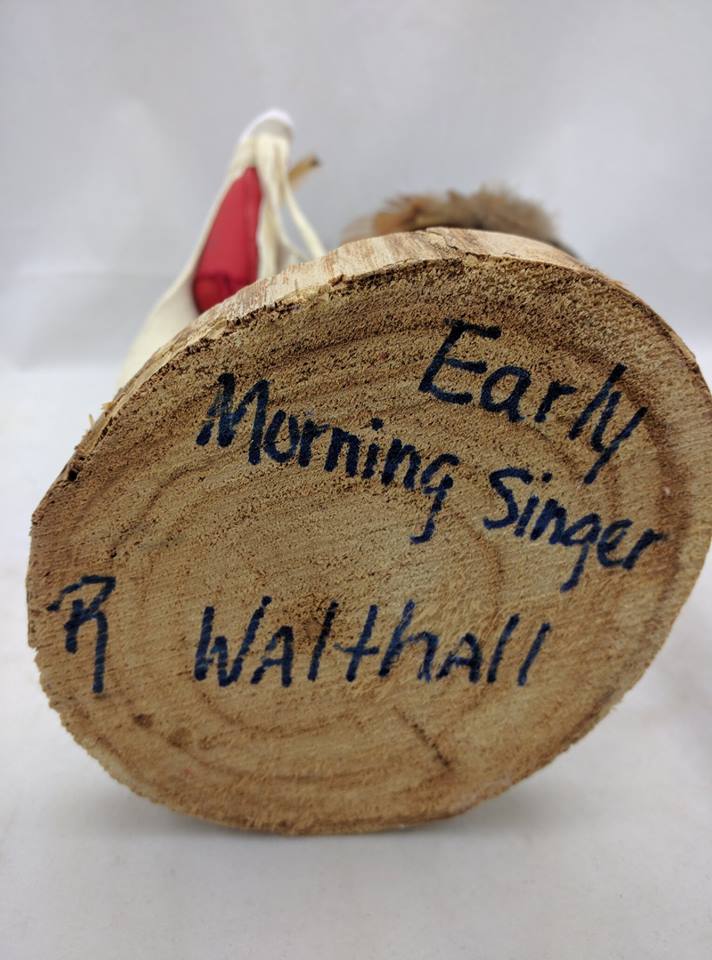 Early
Morning Singer
R Walthall